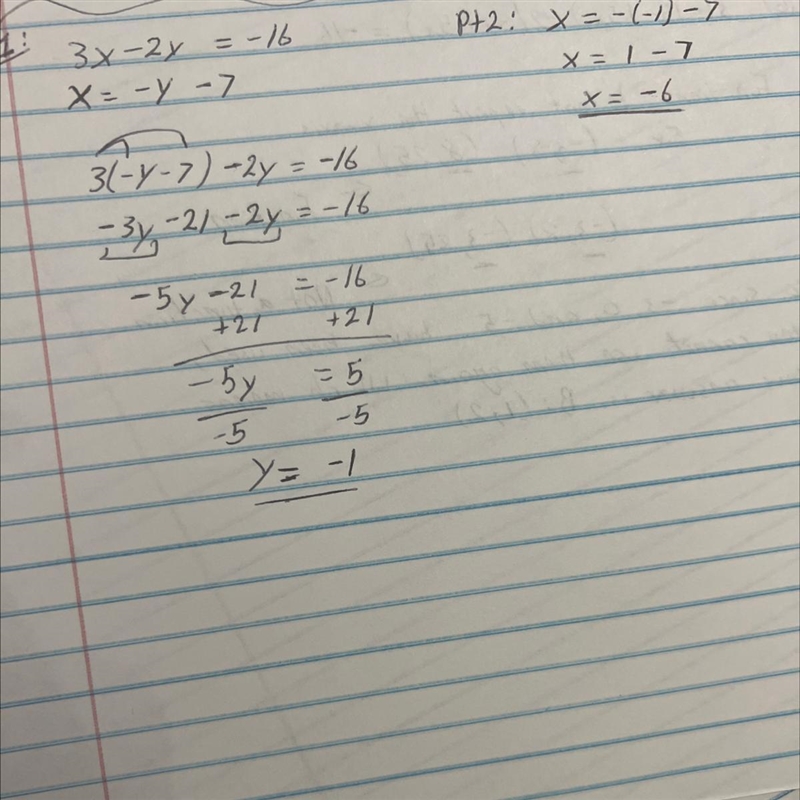 1:
3x-2y = -16
x = -y -7
3(-y-7) -2y = -16
-3y -21 -2y = -16
-5y -21 = -16
+21 +21
-5y = 5
-5 -5
y = -1
pt2: x = -(-1) -7
x = 1 -7
x = -6